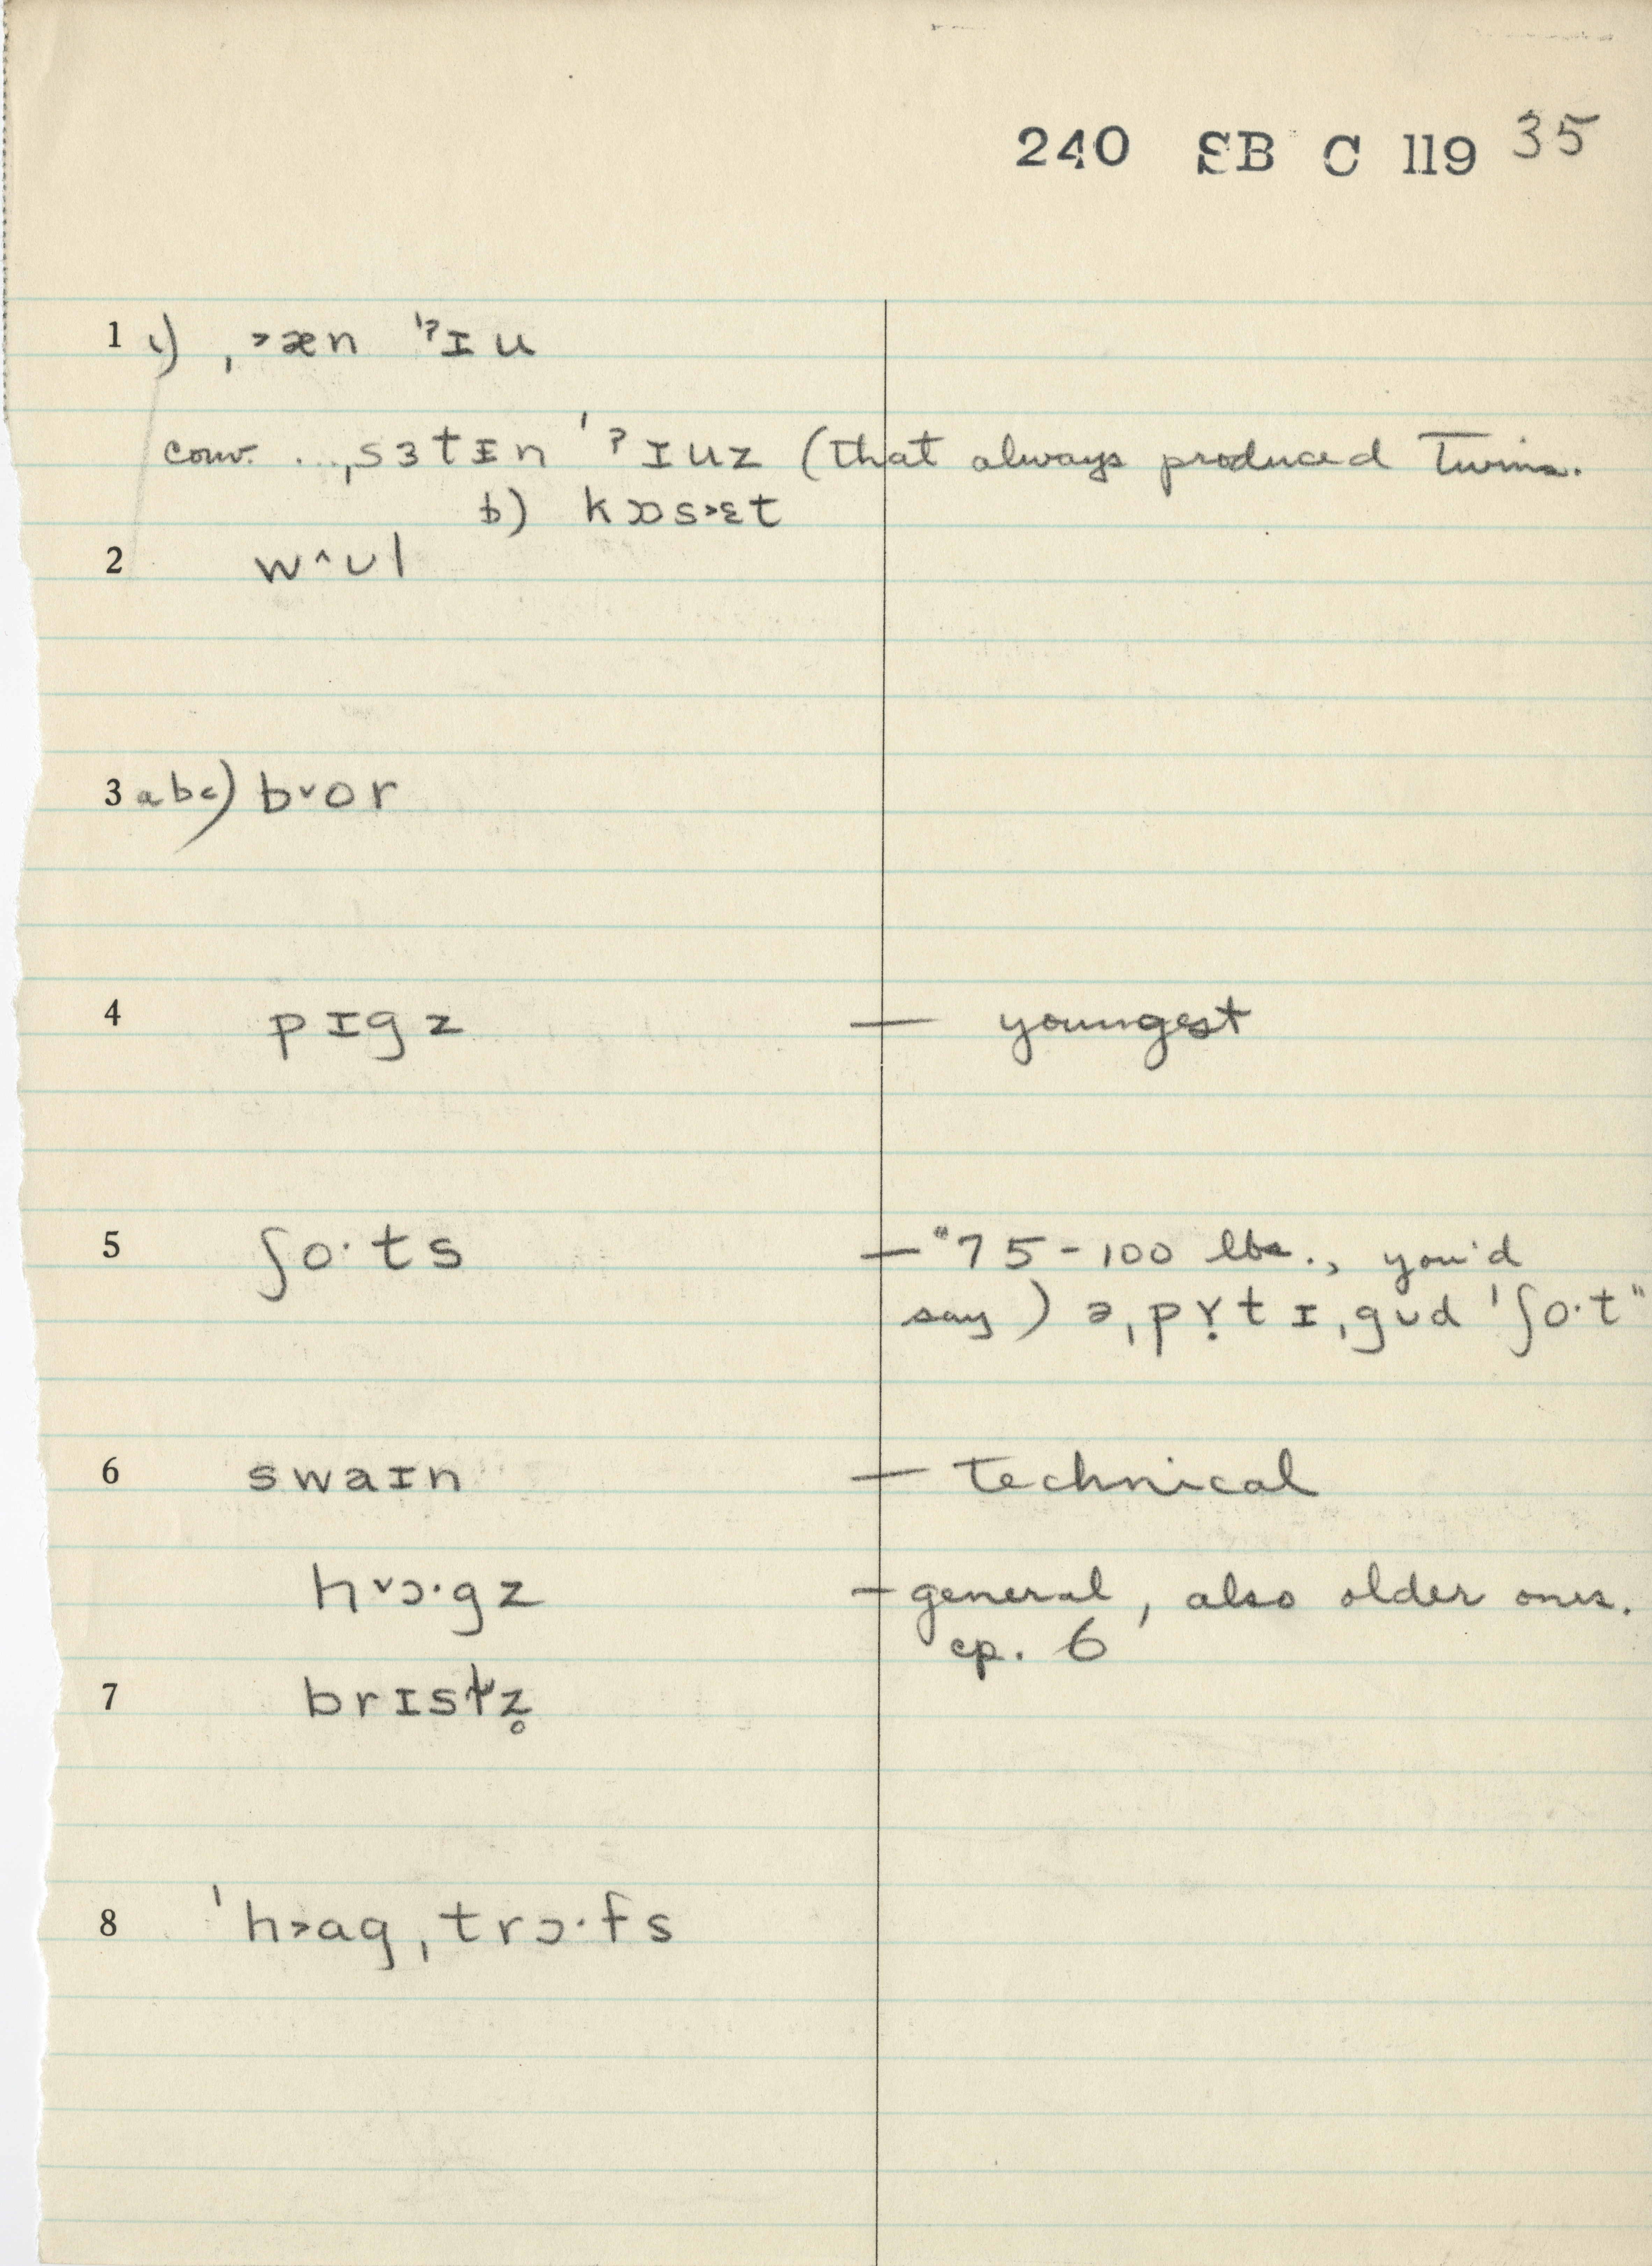 240 SB C 119 35
1 c) ˌ˃æn ˈˀɪu
conv. ...ˌsɜtɪn ˈˀɪuz (that always produced twins.
b) kɒs˃ɛt
2 w^ᴜl
3 abc) b˅or
4 pɪgz — youngest
5 ʃo·ts — "75-100 lbs., you'd
say) əˌpɤ̣tɪˌgᴜd ˈʃo·t"
6 swaɪn — technical
h˅ɔ·gz — general, also older ones.
cp. 6
7 brɪstz̥
8 ˈh˃agˌtrɔ·fs